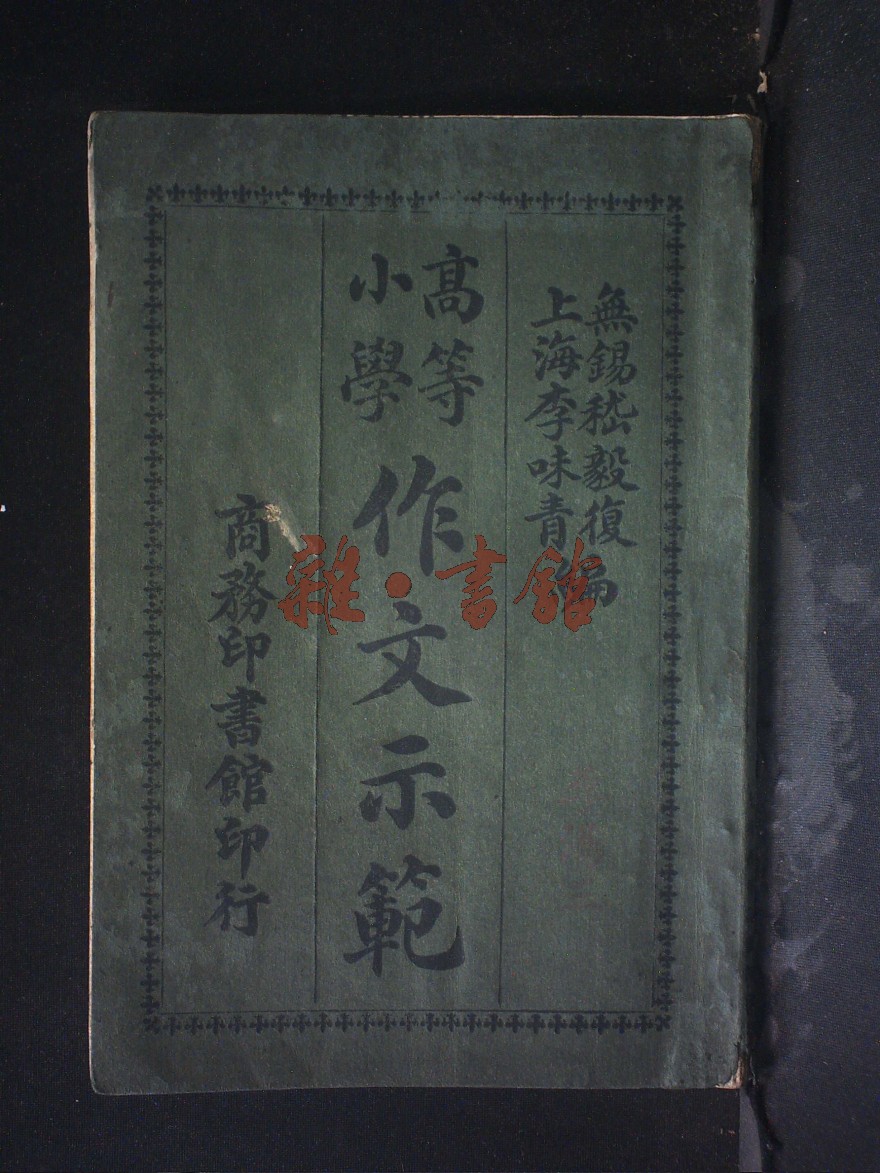 無錫嵇毅復編
上海李味青
高等
小學
作文示範
商務印書館印行
雜·書館